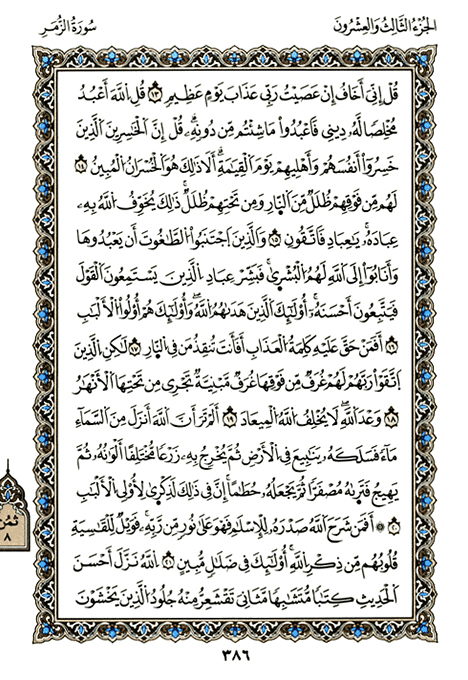 الجزء الثالث والعشرون
سورة الزمر
قُلِ اِنِّيَ أَخَافُ إِنْ عَصَيْتُ رَبِّي عَذَابَ يَوْمٍ عَظِيمٍ ١٣ قُلِ اِللَّهَ أَعْبُدُ
مُخْلِصاً لَّهُ دِينِي فَاعْبُدُواْ مَا شِئْتُم مِّن دُونِهِ قُلْ إِنَّ اَلْخَٰسِرِينَ اَلذِينَ
خَسِرُواْ أَنفُسَهُمْ وَأَهْلِيهِمْ يَوْمَ اَلْقِيَٰمَةِ أَلَا ذَٰلِكَ هُوَ اَلْخُسْرَانُ اُلْمُبِينُ ١٤
لَهُم مِّن فَوْقِهِمْ ظُلَلٌ مِّنَ اَلنَّارِ وَمِن تَحْتِهِمْ ظُلَلٌ ذَٰلِكَ يُخَوِّفُ اُللَّهُ بِهِ
عِبَادَهُ يَٰعِبَادِ فَاتَّقُونِ ١٥ وَالذِينَ اَجْتَنَبُواْ اُلطَّٰغُوتَ أَنْ يَّعْبُدُوهَا
وَأَنَابُواْ إِلَى اَللَّهِ لَهُمُ اُلْبُشْرَىٰ فَبَشِّرْ عِبَادِ اِلذِينَ يَسْتَمِعُونَ اَلْقَوْلَ
فَيَتَّبِعُونَ أَحْسَنَهُ أُوْلَٰئِكَ اَلذِينَ هَدَىٰهُمُ اُللَّهُ وَأُوْلَٰئِكَ هُمُ أُوْلُواْ اُلْأَلْبَٰبِ
١٦ أَفَمَنْ حَقَّ عَلَيْهِ كَلِمَةُ اُلْعَذَابِ أَفَأَنتَ تُنقِذُ مَن فِي اِلنَّارِ ١٧ لَٰكِنِ اِلذِينَ
اَتَّقَوْاْ رَبَّهُمْ لَهُمْ غُرَفٌ مِّن فَوْقِهَا غُرَفٌ مَّبْنِيَّةٌ تَجْرِي مِن تَحْتِهَا اَلْأَنْهَٰرُ
١٨ وَعْدَ اَللَّهِ لَا يُخْلِفُ اُللَّهُ اُلْمِيعَادَ ١٩ أَلَمْ تَرَ أَنَّ اَللَّهَ أَنزَلَ مِنَ اَلسَّمَاءِ
مَاءً فَسَلَكَهُ يَنَٰبِيعَ فِي اِلْأَرْضِ ثُمَّ يُخْرِجُ بِهِ زَرْعاً مُّخْتَلِفاً أَلْوَٰنُهُ ثُمَّ
يَهِيجُ فَتَرَىٰهُ مُصْفَرّاً ثُمَّ يَجْعَلُهُ حُطَٰماً إِنَّ فِي ذَٰلِكَ لَذِكْرَىٰ لِأُوْلِي اِلْأَلْبَٰبِ
٢٠ ۞ أَفَمَن شَرَحَ اَللَّهُ صَدْرَهُ لِلْإِسْلَٰمِ فَهُوَ عَلَىٰ نُورٍ مِّن رَّبِّهِ فَوَيْلٌ لِّلْقَٰسِيَةِ
قُلُوبُهُم مِّن ذِكْرِ اِللَّهِ أُوْلَٰئِكَ فِي ضَلَٰلٍ مُّبِينٍ ٢١ اِللَّهُ نَزَّلَ أَحْسَنَ
اَلْحَدِيثِ كِتَٰباً مُّتَشَٰبِهاً مَّثَانِيَ تَقْشَعِرُّ مِنْهُ جُلُودُ اُلذِينَ يَخْشَوْنَ
ثمن
٨
٣٨٦